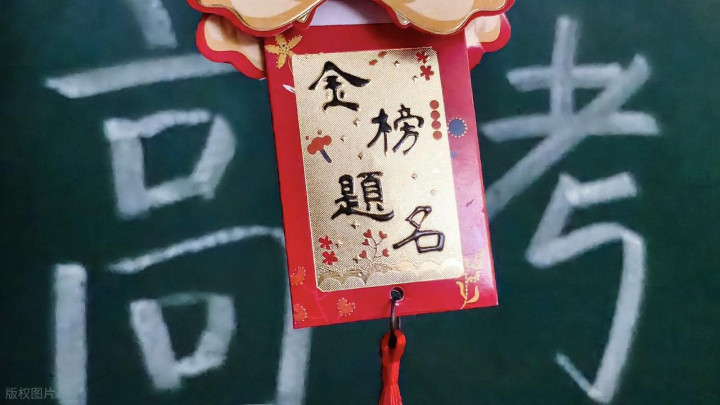 高考
金榜題名
版权图片